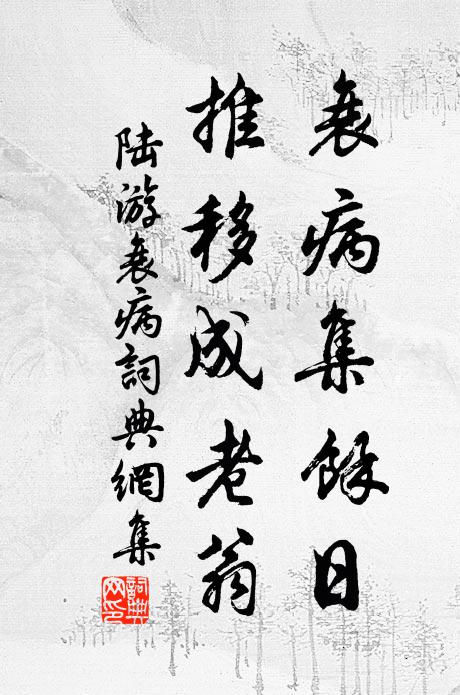 衰病集餘日
推移成老翁
陆游衰病詞典網集
詞典網印